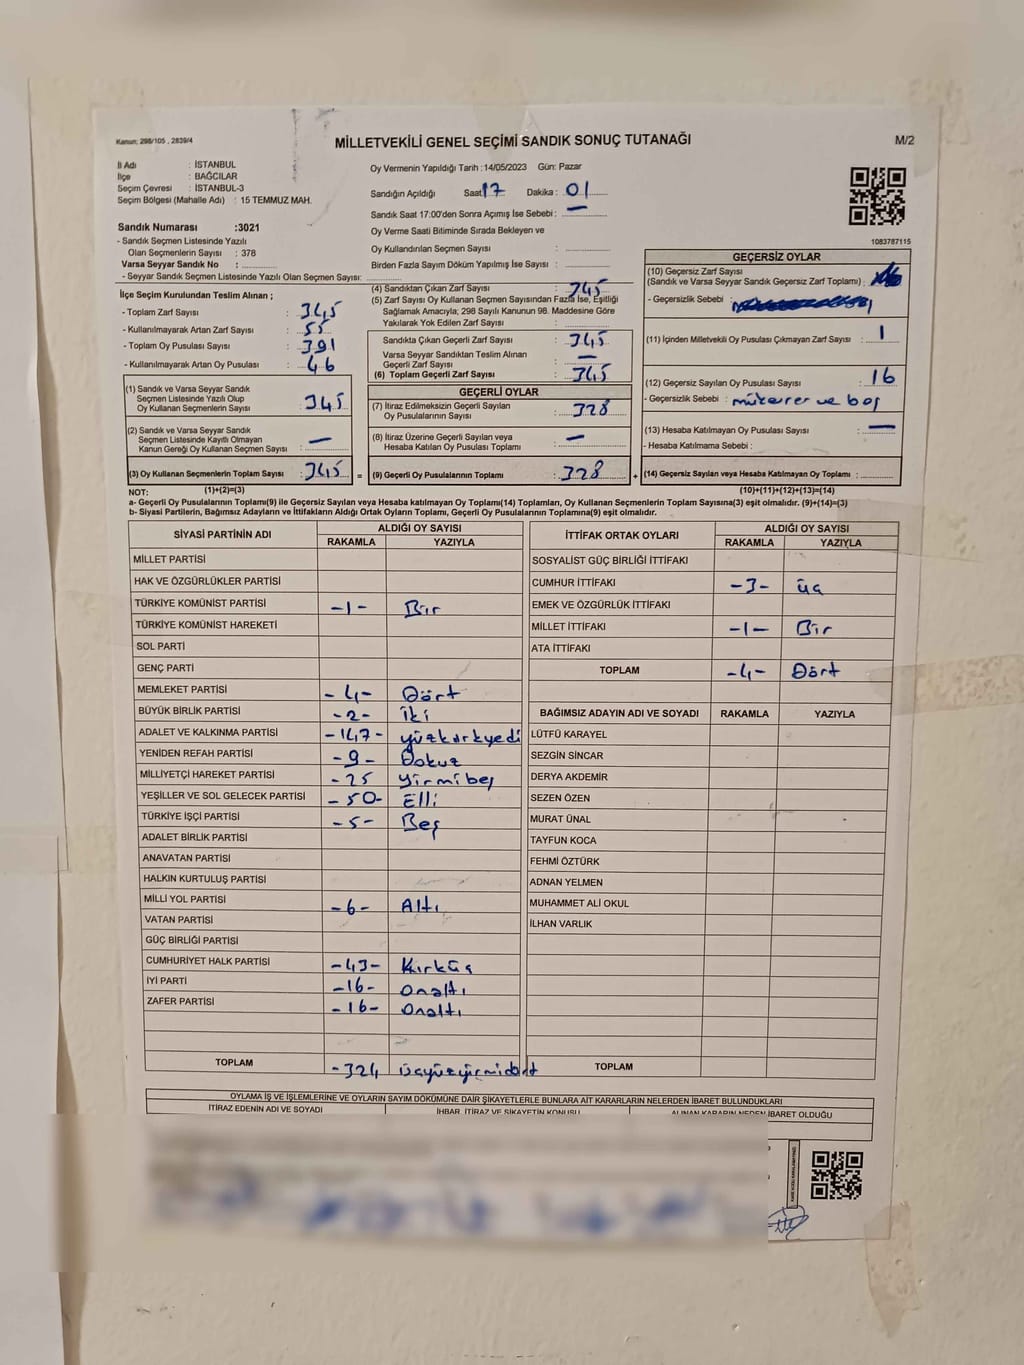 Kanun: 298/105 , 2839/4
MİLLETVEKİLİ GENEL SEÇİMİ SANDIK SONUÇ TUTANAĞI
M/2
İl Adı : İSTANBUL
İlçe : BAĞCILAR
Seçim Çevresi : İSTANBUL-3
Seçim Bölgesi (Mahalle Adı) : 15 TEMMUZ MAH.
Sandık Numarası :3021
- Sandık Seçmen Listesinde Yazılı
Olan Seçmenlerin Sayısı : 378
Varsa Seyyar Sandık No :
- Seyyar Sandık Seçmen Listesinde Yazılı Olan Seçmen Sayısı:
İlçe Seçim Kurulundan Teslim Alınan ;
- Toplam Zarf Sayısı : 345
- Kullanılmayarak Artan Zarf Sayısı : 55
- Toplam Oy Pusulası Sayısı : 391
- Kullanılmayarak Artan Oy Pusulası : 46
(1) Sandık ve Varsa Seyyar Sandık
Seçmen Listesinde Yazılı Olup
Oy Kullanan Seçmenlerin Sayısı : 345
(2) Sandık ve Varsa Seyyar Sandık
Seçmen Listesinde Kayıtlı Olmayan
Kanun Gereği Oy Kullanan Seçmen Sayısı : —
(3) Oy Kullanan Seçmenlerin Toplam Sayısı : 345 =
(1)+(2)=(3)
Oy Vermenin Yapıldığı Tarih :14/05/2023 Gün: Pazar
Sandığın Açıldığı Saat: 17 Dakika: 01
Sandık Saat 17:00'den Sonra Açılmış İse Sebebi : —
Oy Verme Saati Bitiminde Sırada Bekleyen ve
Oy Kullandırılan Seçmen Sayısı :
Birden Fazla Sayım Döküm Yapılmış İse Sayısı :
(4) Sandıktan Çıkan Zarf Sayısı : 345
(5) Zarf Sayısı Oy Kullanan Seçmen Sayısından Fazla İse, Eşitliği
Sağlamak Amacıyla; 298 Sayılı Kanunun 98. Maddesine Göre
Yakılarak Yok Edilen Zarf Sayısı :
Sandıkta Çıkan Geçerli Zarf Sayısı : 345
Varsa Seyyar Sandıktan Teslim Alınan
Geçerli Zarf Sayısı : —
(6) Toplam Geçerli Zarf Sayısı : 345
GEÇERLİ OYLAR
(7) İtiraz Edilmeksizin Geçerli Sayılan
Oy Pusulalarının Sayısı : 328
(8) İtiraz Üzerine Geçerli Sayılan veya
Hesaba Katılan Oy Pusulası Toplamı : —
(9) Geçerli Oy Pusulalarının Toplamı : 328 +
1083787115
GEÇERSİZ OYLAR
(10) Geçersiz Zarf Sayısı
(Sandık ve Varsa Seyyar Sandık Geçersiz Zarf Toplamı) :
- Geçersizlik Sebebi :
(11) İçinden Milletvekili Oy Pusulası Çıkmayan Zarf Sayısı : 1
(12) Geçersiz Sayılan Oy Pusulası Sayısı : 16
- Geçersizlik Sebebi : mükerrer ve boş
(13) Hesaba Katılmayan Oy Pusulası Sayısı : —
- Hesaba Katılmama Sebebi :
(14) Geçersiz Sayılan veya Hesaba Katılmayan Oy Toplamı :
(10)+(11)+(12)+(13)=(14)
NOT:
a- Geçerli Oy Pusulalarının Toplamı(9) ile Geçersiz Sayılan veya Hesaba katılmayan Oy Toplamı(14) Toplamları, Oy Kullanan Seçmenlerin Toplam Sayısına(3) eşit olmalıdır. (9)+(14)=(3)
b- Siyasi Partilerin, Bağımsız Adayların ve İttifakların Aldığı Ortak Oyların Toplamı, Geçerli Oy Pusulalarının Toplamına(9) eşit olmalıdır.
SİYASİ PARTİNİN ADI ALDIĞI OY SAYISI
RAKAMLA YAZIYLA
MİLLET PARTİSİ
HAK VE ÖZGÜRLÜKLER PARTİSİ
TÜRKİYE KOMÜNİST PARTİSİ -1- Bir
TÜRKİYE KOMÜNİST HAREKETİ
SOL PARTİ
GENÇ PARTİ
MEMLEKET PARTİSİ -4- Dört
BÜYÜK BİRLİK PARTİSİ -2- İki
ADALET VE KALKINMA PARTİSİ -147- yüzkırkyedi
YENİDEN REFAH PARTİSİ -9- Dokuz
MİLLİYETÇİ HAREKET PARTİSİ -25 yirmibeş
YEŞİLLER VE SOL GELECEK PARTİSİ -50- Elli
TÜRKİYE İŞÇİ PARTİSİ -5- Beş
ADALET BİRLİK PARTİSİ
ANAVATAN PARTİSİ
HALKIN KURTULUŞ PARTİSİ
MİLLİ YOL PARTİSİ -6- Altı
VATAN PARTİSİ
GÜÇ BİRLİĞİ PARTİSİ
CUMHURİYET HALK PARTİSİ -43- Kırküç
İYİ PARTİ -16- Onaltı
ZAFER PARTİSİ -16- Onaltı
TOPLAM -324 üçyüzyirmidört
İTTİFAK ORTAK OYLARI ALDIĞI OY SAYISI
RAKAMLA YAZIYLA
SOSYALİST GÜÇ BİRLİĞİ İTTİFAKI
CUMHUR İTTİFAKI -3- üç
EMEK VE ÖZGÜRLÜK İTTİFAKI
MİLLET İTTİFAKI -1- Bir
ATA İTTİFAKI
TOPLAM -4- Dört
BAĞIMSIZ ADAYIN ADI VE SOYADI RAKAMLA YAZIYLA
LÜTFÜ KARAYEL
SEZGİN SİNCAR
DERYA AKDEMİR
SEZEN ÖZEN
MURAT ÜNAL
TAYFUN KOCA
FEHMİ ÖZTÜRK
ADNAN YELMEN
MUHAMMET ALİ OKUL
İLHAN VARLIK
TOPLAM
OYLAMA İŞ VE İŞLEMLERİNE VE OYLARIN SAYIM DÖKÜMÜNE DAİR ŞİKAYETLERLE BUNLARA AİT KARARLARIN NELERDEN İBARET BULUNDUKLARI
İTİRAZ EDENİN ADI VE SOYADI İHBAR, İTİRAZ VE ŞİKAYETİN KONUSU ALINAN KARARIN NEDEN İBARET OLDUĞU